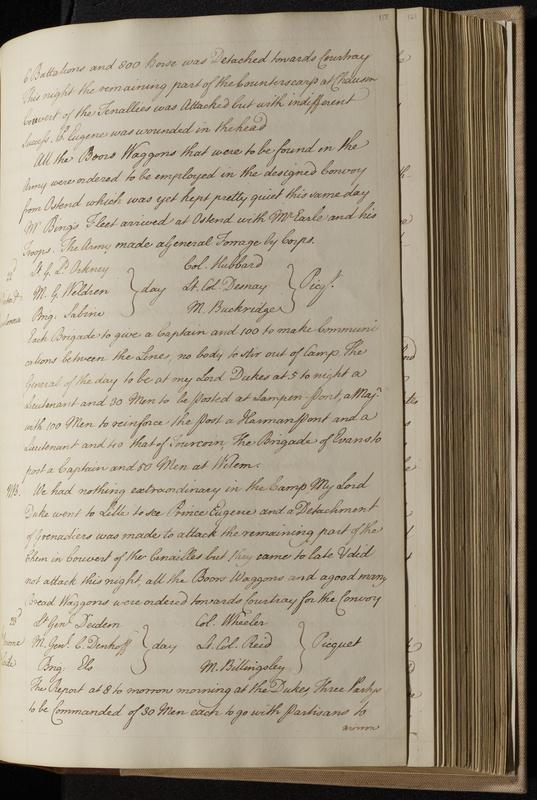 6 Battalions and 800 horse was Detached towards Courtray
This night the remaining part of the Counterscarp at Chausm
Couvert of the Tenallies was Attacked but with indifferent
Success. P. Eugene was wounded in the head
All the Boors Waggons that were to be found in the
Army were ordered to be employed in the designed Convoy
from Ostend which was yet kept pretty quiet this same day
Mr Bing's Fleet arrived at Ostend with Mr Earle and his
Troops. The Army made a General Forrage by Corps.
22d
Lt. G. Ld. Orkney
M. G. Weldren
Brig. Sabine
day
Col. Hubbard
Lt. Col. Desnay
M. Buckridge
Picqt.
Each Brigade to give a Captain and 100 to make Communi
cations between the Lines, no body to stir out of Camp. The
General of the day to be at my Lord Dukes at 5 to night a
Lieutenant and 30 Men to be posted at Lampon-pont, a Maj.
with 100 Men to reinforce the Post a Harmanspont and a
Lieutenant and 40 that of Tourcoin, The Brigade of Evans to
post a Captain and 50 Men at Wilem.
NB. We had nothing extraordinary in the Camp My Lord
Duke went to Lille to see Prince Eugene and a Detachment
of Grenadiers was made to attack the remaining part of the
Chem in Couvert of the but they came to late & did
not attack this night, all the Boors Waggons and a good many
Bread Waggons were ordered towards Courtray for the Convoy
23d
Lt Genl. Dedem
M. Genl. C. Denhoff
Brig. Els
day
Col. Wheeler
Lt. Col. Reed
M. Billingsley
Picquet
The Report at 8 to morrow morning at the Dukes Three Partys
to be Commanded of 30 Men each to go with Partisans to